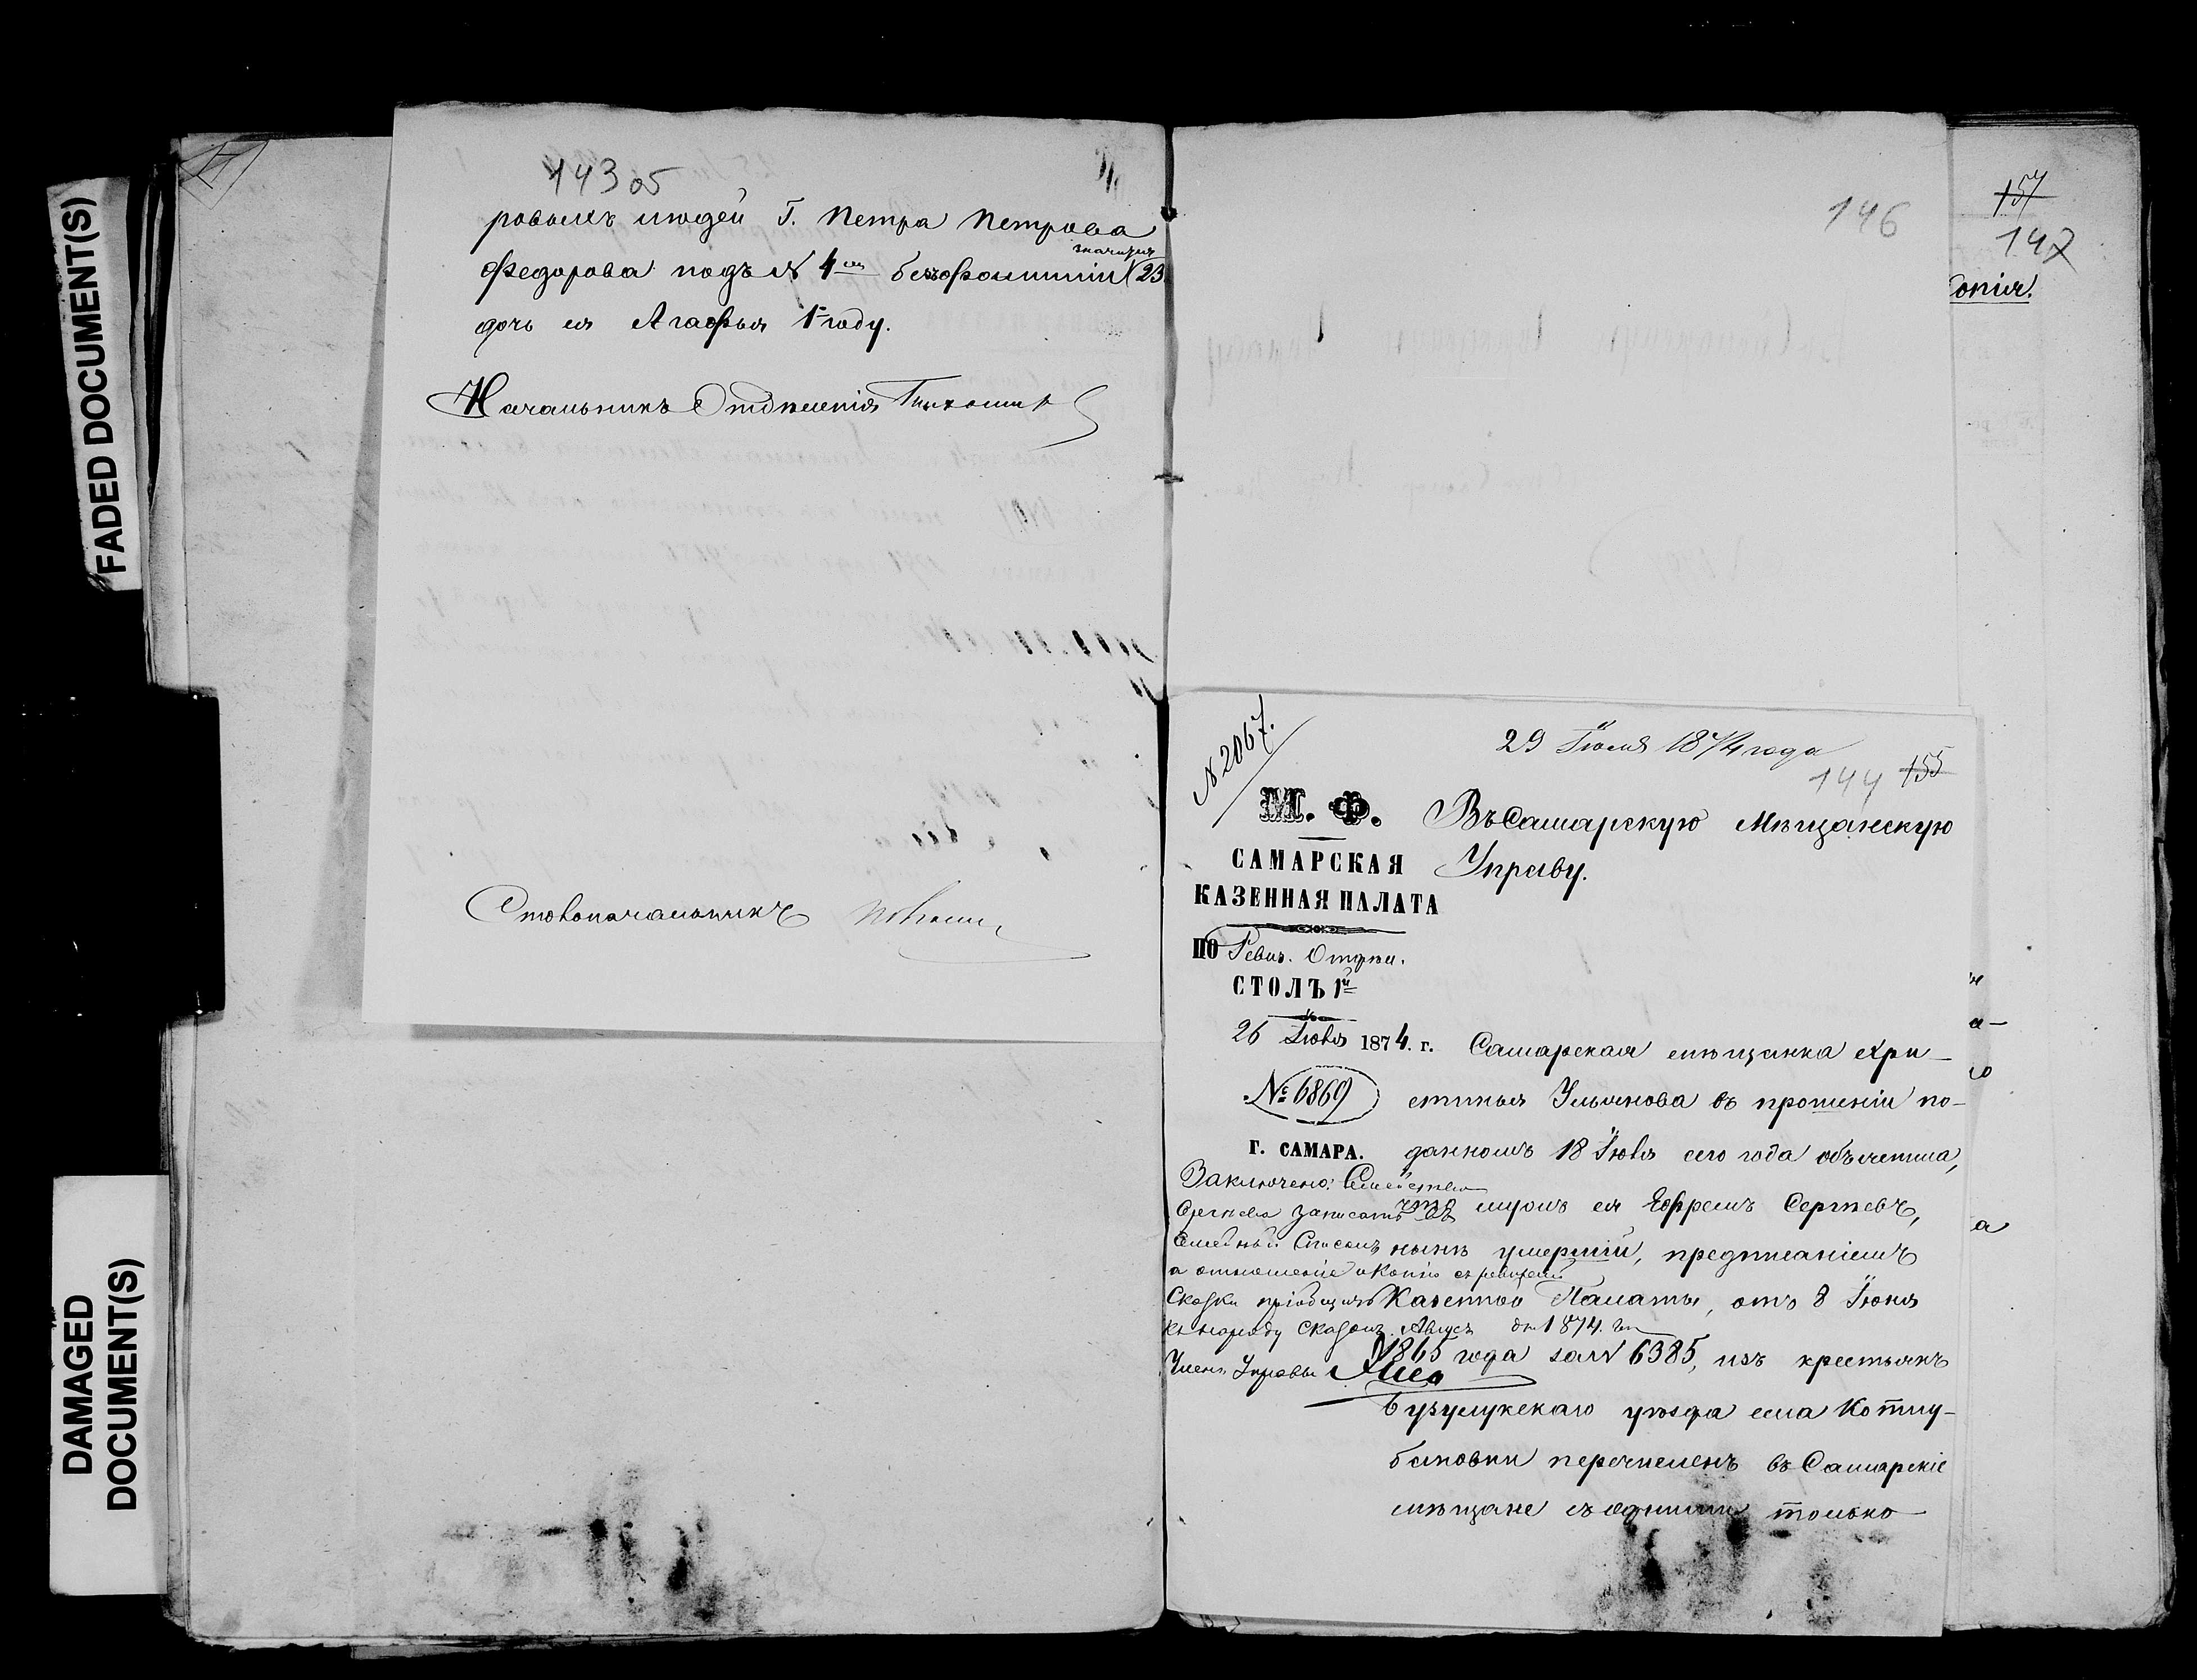 FADED DOCUMENT(S)
DAMAGED
DOCUMENT(S)
143 об
ровыхъ людей Г. Петра Петрова
Федорова подъ № 4 безъ фамиліи значится 23
дочь ея Агафья 1 году.
Начальникъ Отдѣленія
Столоначальникъ
146
157
147
опія.
№ 2067.
29 Іюля 1874 года
144 155
М. Ф.
САМАРСКАЯ
КАЗЕННАЯ ПАЛАТА
ПО Ревиз. Отдѣл.
СТОЛЪ 1й
26 Іюля 1874. г.
№ 6869
Г. САМАРА.
Въ Самарскую Мѣщанскую
Управу.
Самарская мѣщанка Хри-
стинья Ульянова въ прошеніи по-
данномъ 18 Іюля сего года объяснила,
что мужъ ея Ефремъ Сергѣевъ,
нынѣ умершій, предписаніемъ
Казенной Палаты, отъ 8 Іюня
1865 года за № 6385, изъ крестьянъ
Бузулукскаго уѣзда села Котлу-
бановки перечисленъ въ Самарскіе
мѣщане съ одними только
Заключено: Семейство
Сергѣева записать въ
Семейный Списокъ
а отношеніе и копію съ ревизской
Сказки пріобщить
къ наряду Сказокъ. Август. дн. 1874. г.
Членъ Управы